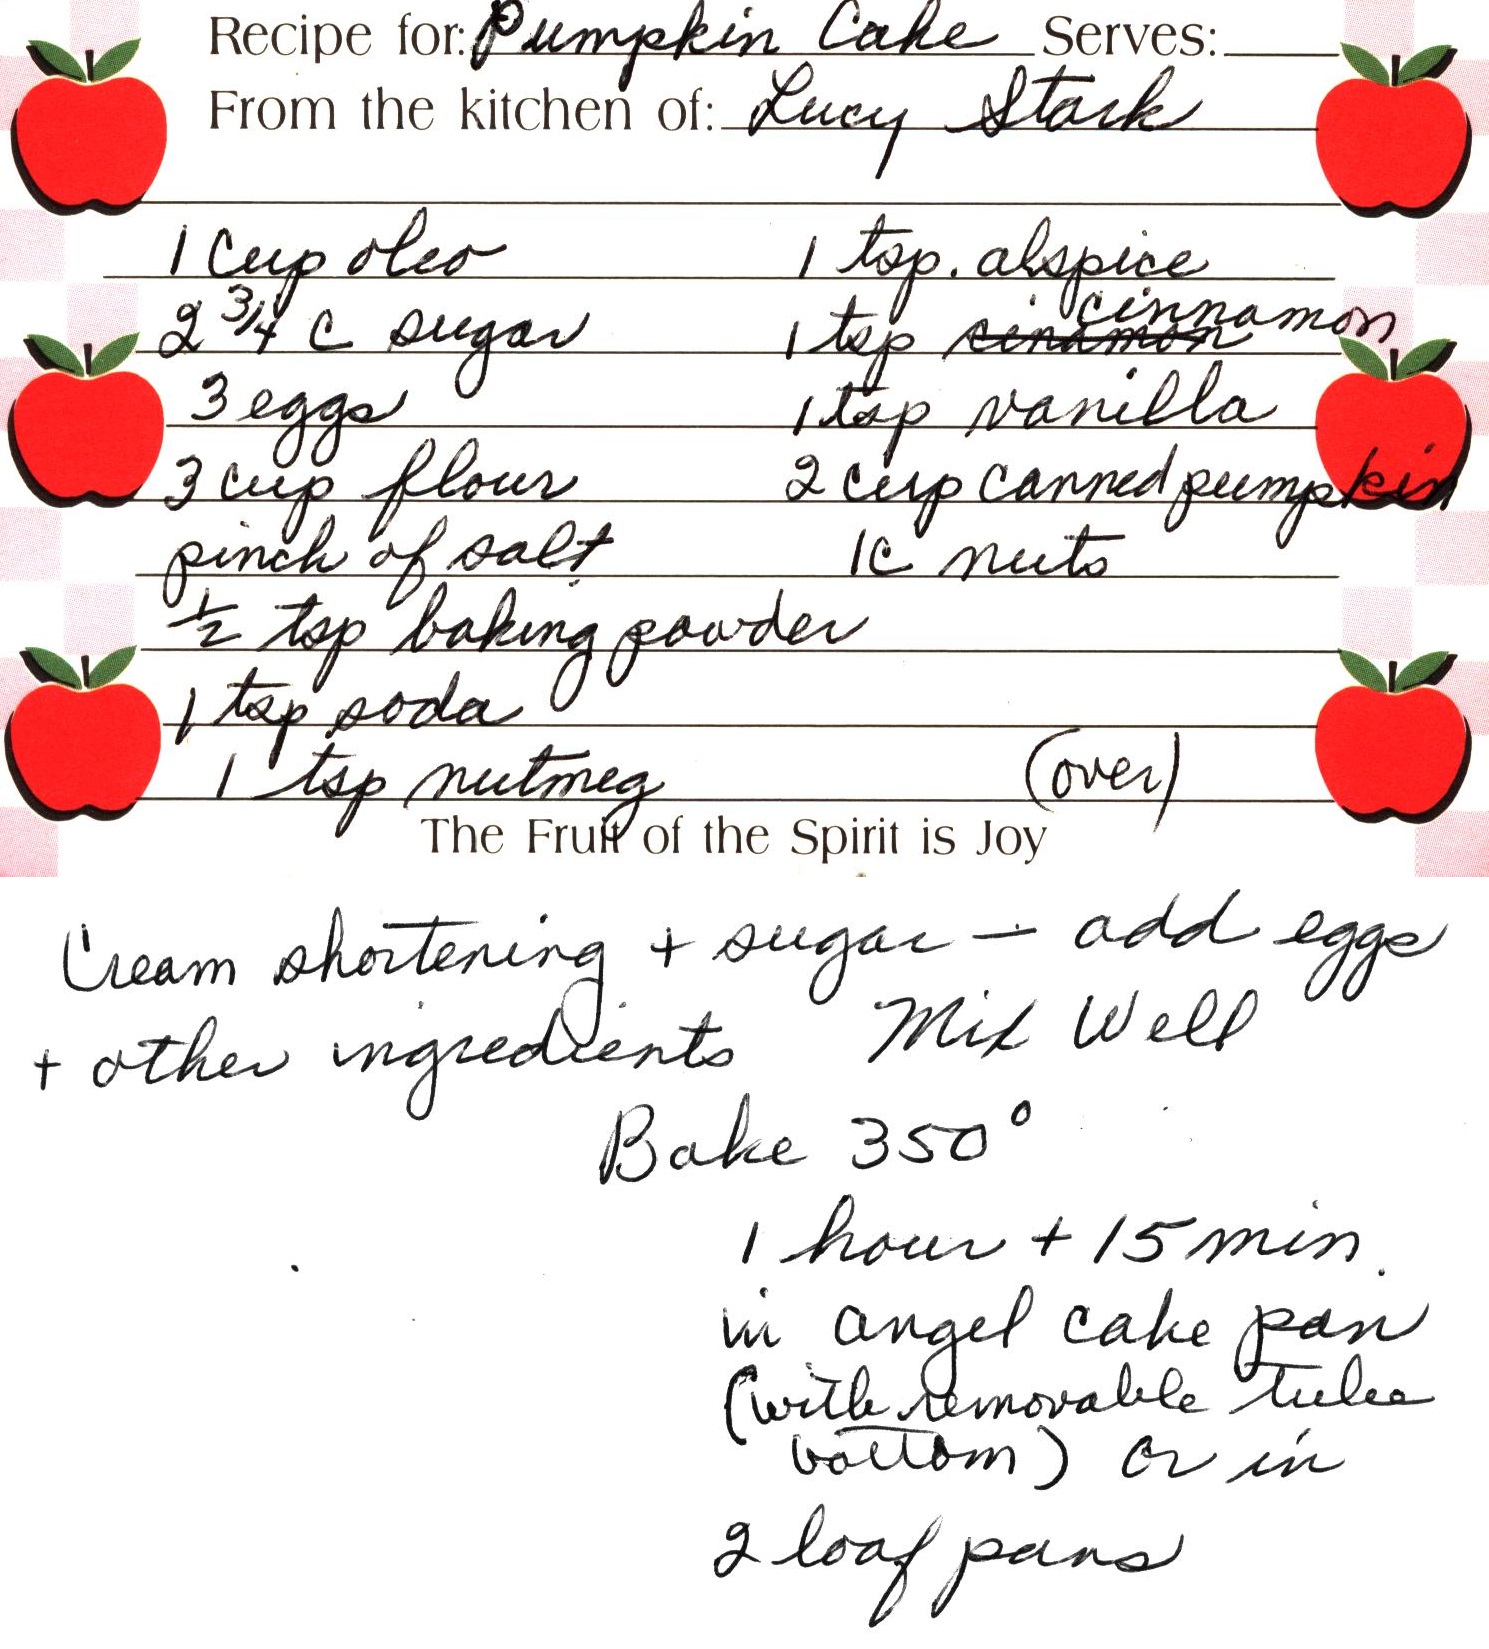 Recipe for: Pumpkin Cake Serves:
From the kitchen of: Lucy Stark
1 Cup oleo
2 3/4 C sugar
3 eggs
3 cup flour
pinch of salt
1/2 tsp baking powder
1 tsp soda
1 tsp nutmeg
1 tsp. alspice
1 tsp cinamon cinnamon
1 tsp vanilla
2 cup canned pumpkin
1C nuts
(over)
The Fruit of the Spirit is Joy
Cream shortening + sugar - add eggs
+ other ingredients Mix Well
Bake 350°
1 hour + 15 min.
in angel cake pan
(with removable tube
bottom) or in
2 loaf pans